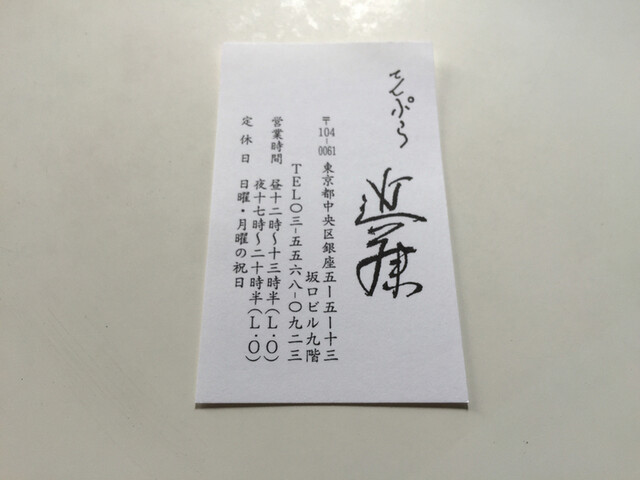 てんぷら 近藤
〒104-0061 東京都中央区銀座五ー五ー十三
坂口ビル九階
TEL〇三-五五六八-〇九二三
営業時間 昼十二時〜十三時半(L・O)
夜十七時〜二十時半(L・O)
定休日 日曜・月曜の祝日